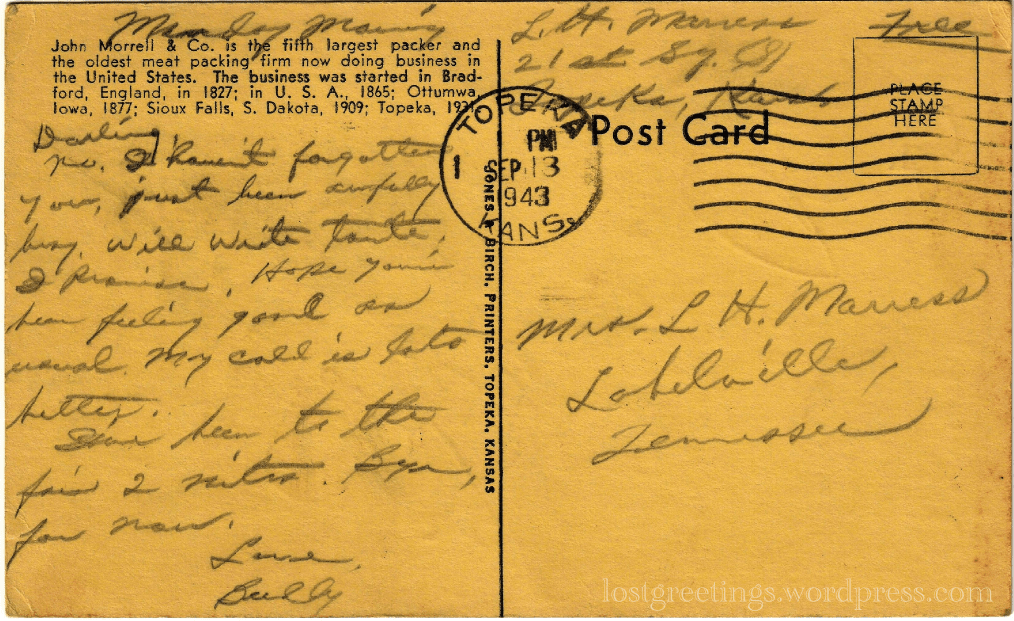 Monday Morning
John Morrell & Co. is the fifth largest packer and
the oldest meat packing firm now doing business in
the United States. The business was started in Brad-
ford, England, in 1827; in U. S. A., 1865; Ottumwa,
Iowa, 1877; Sioux Falls, S. Dakota, 1909; Topeka, 1931.
Darling,
no. I haven't forgotten
you, just been awfully
busy. Will write tonite,
I promise. Hope you've
been feeling good as
usual. My cold is lots
better.
I've been to the
fair 2 nites. Bye,
for now.
Love,
Buddy
JONES & BIRCH, PRINTERS, TOPEKA, KANSAS
L. H. Marress
21st Sq.
Topeka, Kans
Free
PLACE
STAMP
HERE
Post Card
TOPEKA
PM
1 SEP 13
1943
KANS.
Mrs. L H. Marress
Lobelville,
Tennessee
lostgreetings.wordpress.com